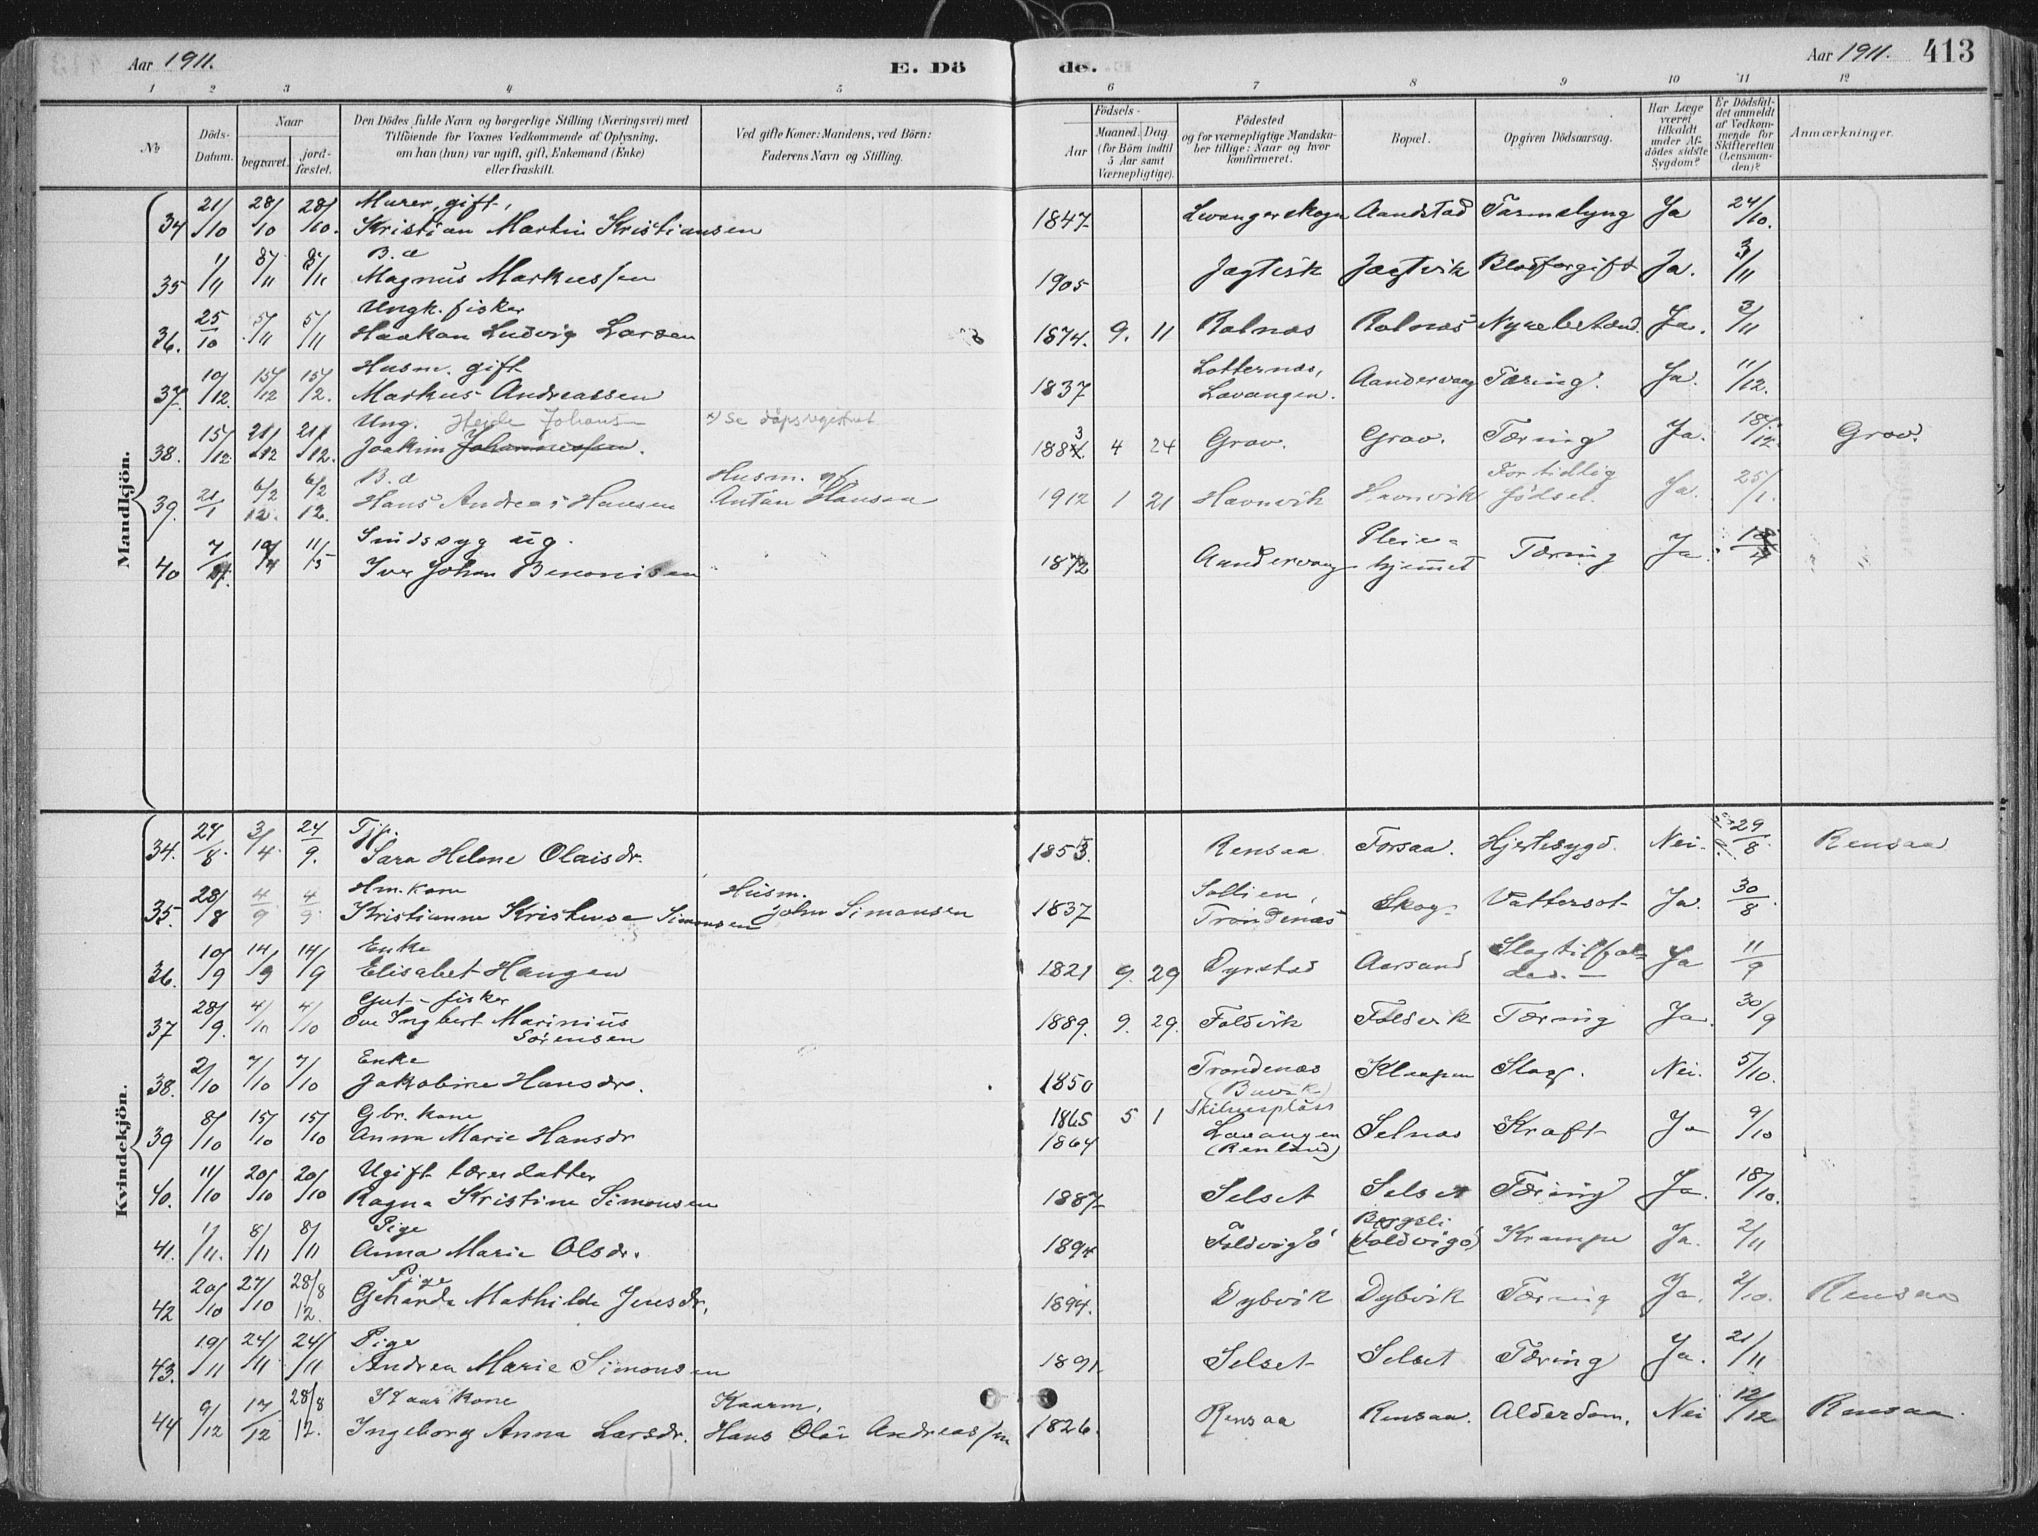 Aar 1911.
E. Dö
de.
Aar 1911.
413
1 2 3 4 5 6 7 8 9 10 11 12
No
Döds-
Datum.
Naar
begravet.
jord-
fæstet.
Den Dödes fulde Navn og borgerlige Stilling (Næringsvei) med
Tilföiende for Voxnes Vedkommende af Oplysning,
om han (hun) var ugift, gift, Enkemand (Enke)
eller fraskilt.
Ved gifte Koner: Mandens, ved Börn:
Faderens Navn og Stilling.
Födsels-
Aar
Maaned. Dag.
(for Börn indtil
5 Aar samt
Værnepligtige).
Födested
og for værnepligtige Mandska-
ber tillige: Naar og hvor
konfirmeret.
Bopæl.
Opgiven Dödsaarsag.
Har Læge
været
tilkaldt
under Af-
dödes sidste
Sygdom?
Er Dödsfal-
det anmeldt
af Vedkom-
mende for
Skifteretten
(Lensman-
den)?
Anmærkninger.
Mandkjön.
34 21/10 28/10 28/10. Murer, gift,
Kristian Martin Kristiansen 1847 Levangerskogn Aandstad Tarmslyng Ja 24/10.
35 1/11 8/11 8/11 B. a
Magnus Markussen 1905 Jægtvik Jægtvik Blodforgift Ja. 3/11
36. 25/10 5/11 5/11 Ungk. fisker
Haakon Ludvig Larsen 1874. 9. 11 Rolnæs Rolnæs Nyrebetænd. Ja. 3/11
37. 10/12. 15/12 15/12. Husm. gift
Markus Andreassen 1837 Lotternæs,
Lavangen. Aandervaag Tæring. Ja. 11/12.
38. 15/12 21/12 21/12. Ung. Heide Johans
Joakim Johannessen. x) Se dåpsregistret 1883 4 24 Grov. Grov. Tæring Ja. 18/12. Grov.
39. 21/1 6/2 12. 6/2 12. B. a
Hans Andreas Hansen Husm.
Anton Hansen 1912 1 21 Havnvik Havnvik For tidlig
födsel. Ja. 25/1.
40 7/4. 19/4 11/5 Sindssyg ug.
Iver Johan Benonisen 1872 Aandervaag Pleie-
hjemmet Tæring Ja.
Kvindekjön.
34. 27/8. 3/4 24/9. Tjp.
Sara Helene Olaisdr. 1853. Rensaa Forsaa. Hjertesygd. Nei. 29/8. Rensaa
35. 28/8 4/9 4/9. Hm. kone
Kristianne Kristense Simonsen Husm.
John Simonsen 1837 Sollien,
Trondenæs Skog. Vattersot Ja. 30/8
36. 10/9 14/9 14/9 Enke
Elisabet Haugen 1821 9. 29 Dyrstad Aarsand Slagtilfæl-
de. Ja 11/9
37 28/9. 4/10 4/10 Gut - fisker
Ove Ingbert Marinius
Sörensen 1889. 9. 29. Foldvik Foldvik Tæring Ja. 30/9
38. 2/10 7/10 7/10 Enke
Jakobine Hansdr. 1850 Trondenæs
(Buvik) Klaapen Slag. Nei. 5/10.
39 8/10 15/10 15/10 Gbr. kone
Anna Marie Hansdr 1865 5 1
1864 Lavangen
(Renland) Selnæs Kræft Ja 9/10
40. 11/10 20/10 20/10 Ugift lærerdatter
Ragna Kristine Simonsen 1887 Selset Selset Tæring Ja. 18/10.
41. 1/11. 8/11 8/11 Pige
Anna Marie Olsdr. 1894 Foldvigö Bergsli
(Foldvigö) Krampe Ja. 2/11
42 20/10 27/10 28/8 12. Pige
Geharda Mathilde Jensdr. 1894. Dybvik Dybvik Tæring Ja. 2/10. Rensaa
43. 19/11 24/11 24/11 Pige
Andrea Marie Simonsen 1891. Selset Selset Tæring Ja. 21/11
44 9/12 17/12 28/8 12. Kaarkone
Ingeborg Anna Larsdr. Kaarm.
Hans Olai Andreassen 1826. Rensaa Rensaa. Alderdom. Nei 12/12 Rensaa.